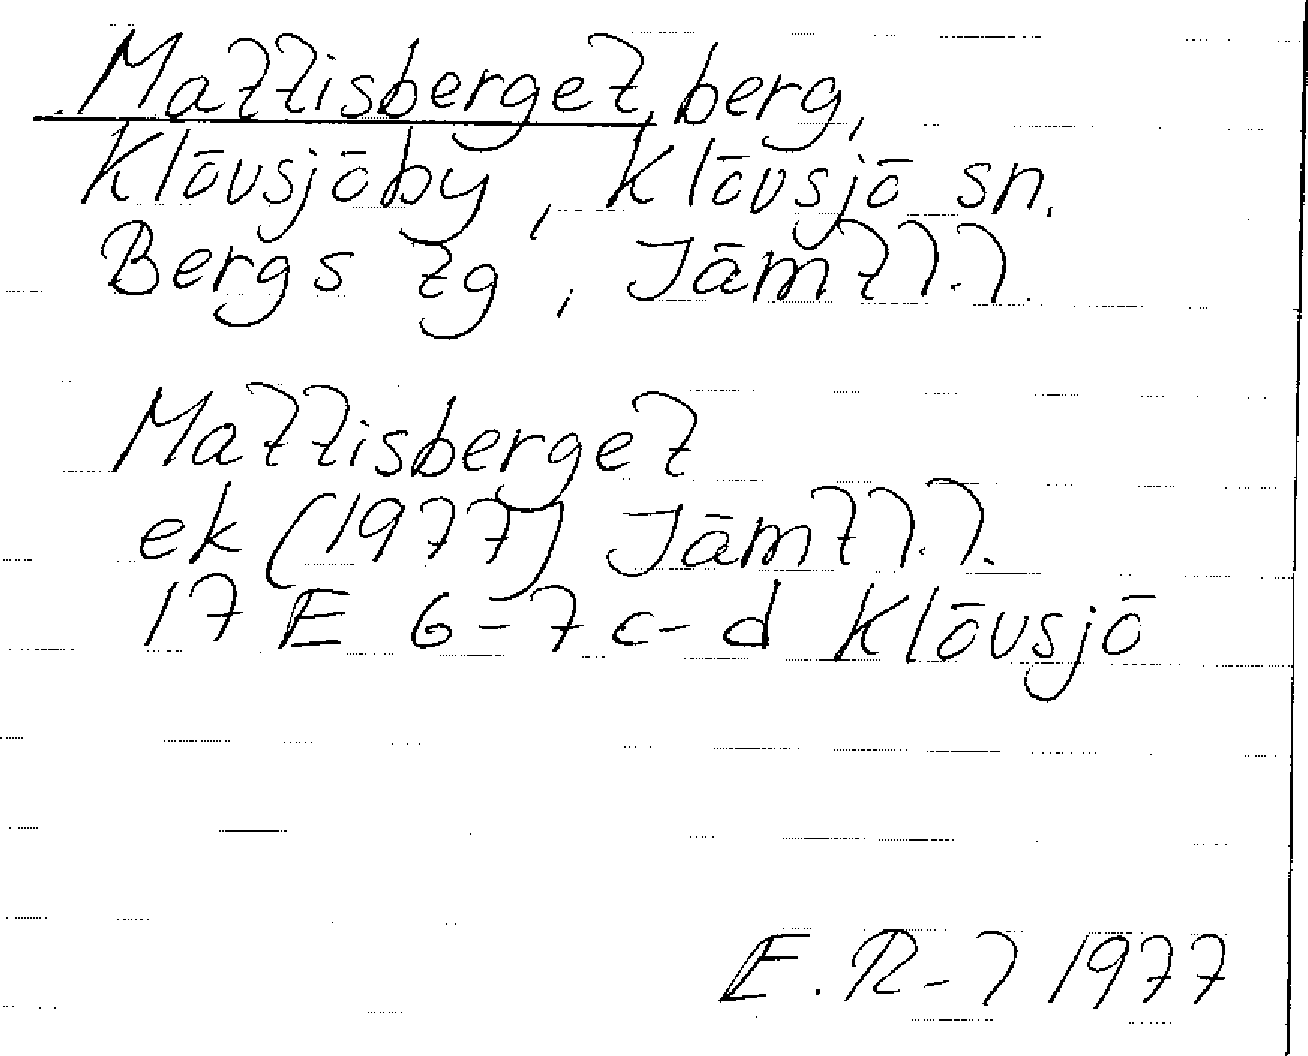 Mattisberget, berg,
Klövsjöby, Klövsjö sn.
Bergs tg, Jämtl.l.
Mattisberget
ek (1977) Jämtl.l.
17 E 6-7 c-d Klövsjö
E.R-l 1977